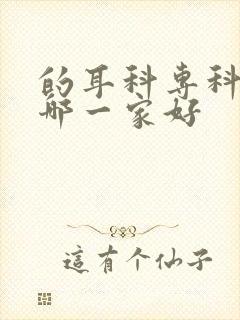 的耳科专科
哪一家好
這有个仙子